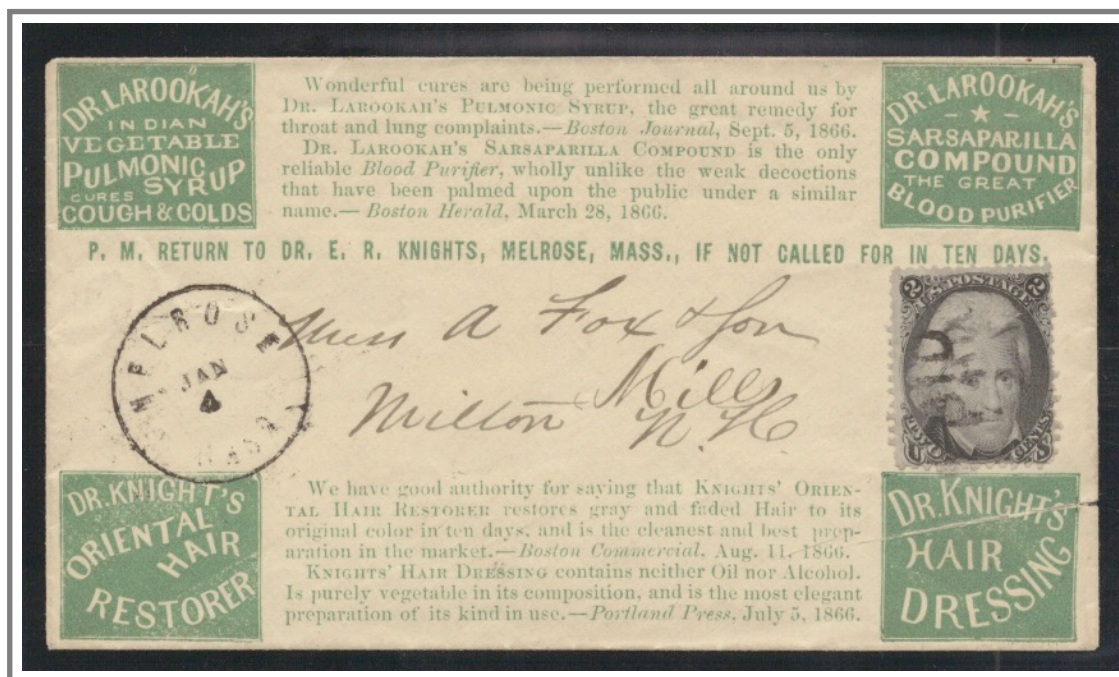 DR. LAROOKAH'S
INDIAN
VEGETABLE
PULMONIC
SYRUP
CURES
COUGH & COLDS
Wonderful cures are being performed all around us by
DR. LAROOKAH'S PULMONIC SYRUP, the great remedy for
throat and lung complaints.—Boston Journal, Sept. 5, 1866.
DR. LAROOKAH'S SARSAPARILLA COMPOUND is the only
reliable Blood Purifier, wholly unlike the weak decoctions
that have been palmed upon the public under a similar
name.—Boston Herald, March 28, 1866.
DR. LAROOKAH'S
SARSAPARILLA
COMPOUND
THE GREAT
BLOOD PURIFIER
P. M. RETURN TO DR. E. R. KNIGHTS, MELROSE, MASS., IF NOT CALLED FOR IN TEN DAYS.
MELROSE
JAN
4
MASS
Mess A Fox & Son
Milton Mills
N. H.
2 U.S. POSTAGE 2
PAID
TWO CENTS
DR. KNIGHT'S
ORIENTAL
HAIR
RESTORER
We have good authority for saying that KNIGHTS' ORIEN-
TAL HAIR RESTORER restores gray and faded Hair to its
original color in ten days, and is the cleanest and best prep-
aration in the market.—Boston Commercial, Aug. 11, 1866.
KNIGHTS' HAIR DRESSING contains neither Oil nor Alcohol.
Is purely vegetable in its composition, and is the most elegant
preparation of its kind in use.—Portland Press, July 5, 1866.
DR. KNIGHT'S
HAIR
DRESSING